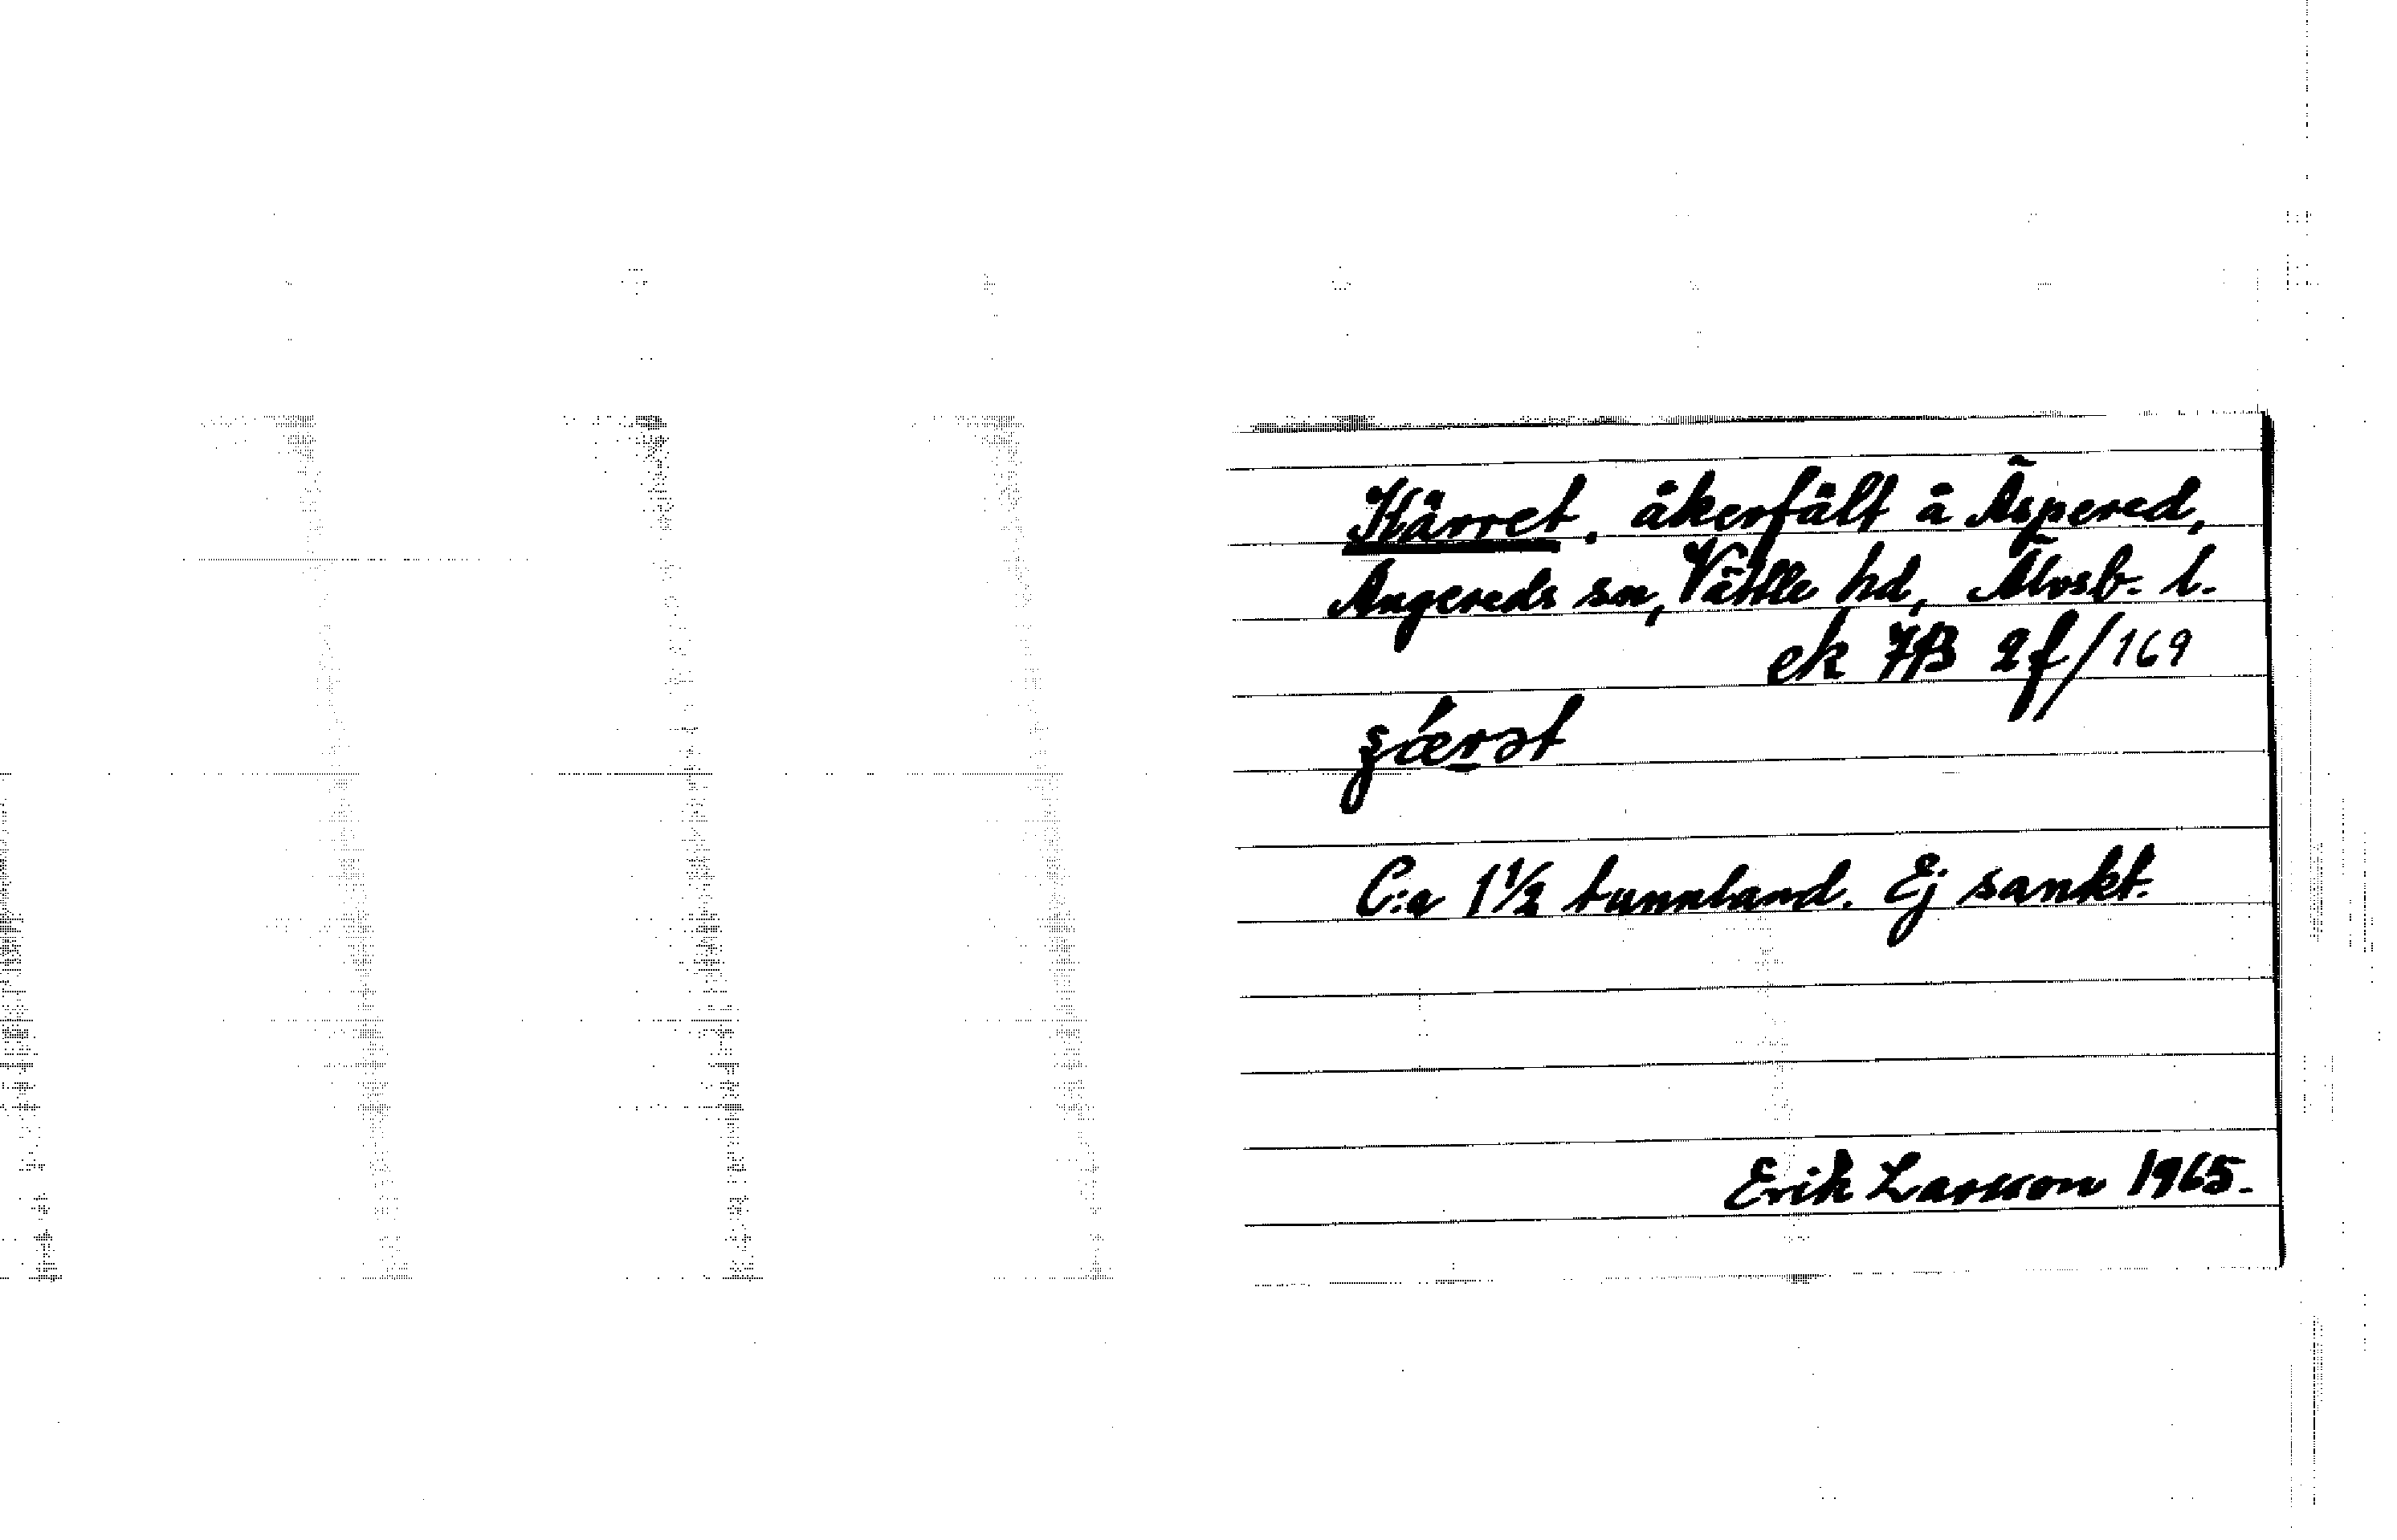 Kärret, åkerfält å Äspered,
Angereds sn, Vättle hd, Älvsb. l.
ek 7B 2f/169
C:a 1½ tunnland. Ej sankt.
Erik Larsson 1965.